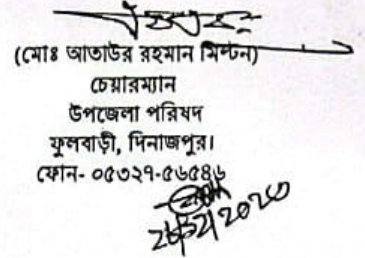 (মোঃ আতাউর রহমান মিল্টন)
চেয়ারম্যান
উপজেলা পরিষদ
ফুলবাড়ী, দিনাজপুর।
ফোন- ০৫৩২৭-৫৬৫৪৬